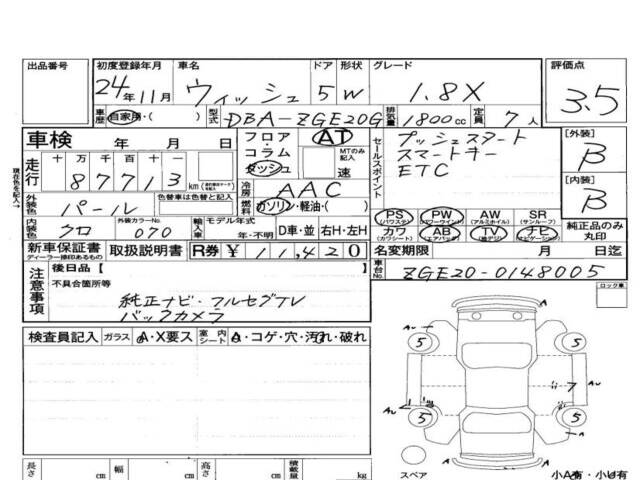 出品番号 初度登録年月 車名 ドア 形状 グレード 評価点
24年11月 ウィッシュ 5 W 1.8X 3.5
車歴 自家用・( ) 型式 DBA-ZGE20G 排気量 1800cc 定員 7人
車検 年 月 日
フロア・コラム・ダッシュ AT MTのみ記入 速
セールスポイント プッシュスタート
スマートキー
ETC
[外装] B
[内装] B
走行 十万千百十一
87713 km
冷房 AAC
燃料 ガソリン・軽油・( )
外装色 パール 色替車は色替と記入
内装色 クロ 外装カラーNo. 070
輸入車 モデル年式 年・不明 D車・並 右H・左H
PS (パワステ) PW (パワーウインド) AW (アルミホイル) SR (サンルーフ)
カワ (カワシート) AB (エアバック) TV (純正) ナビ (ナビゲーション)
純正品のみ丸印
新車保証書 ディーラー捺印あるもの 取扱説明書 R券 ¥11,420
名変期限 月 日迄
車台No. ZGE20-0148005
現在色を記入→
注意事項 後日品【
不具合箇所等
純正ナビ・フルセグTV
バックカメラ
ロック車
検査員記入 ガラス A・X要ス 室内シート A・コゲ・穴・汚れ・破れ
5 5
5 5
スペア
長さ cm 幅 cm 高さ cm 積載量 kg
小A有・小U有